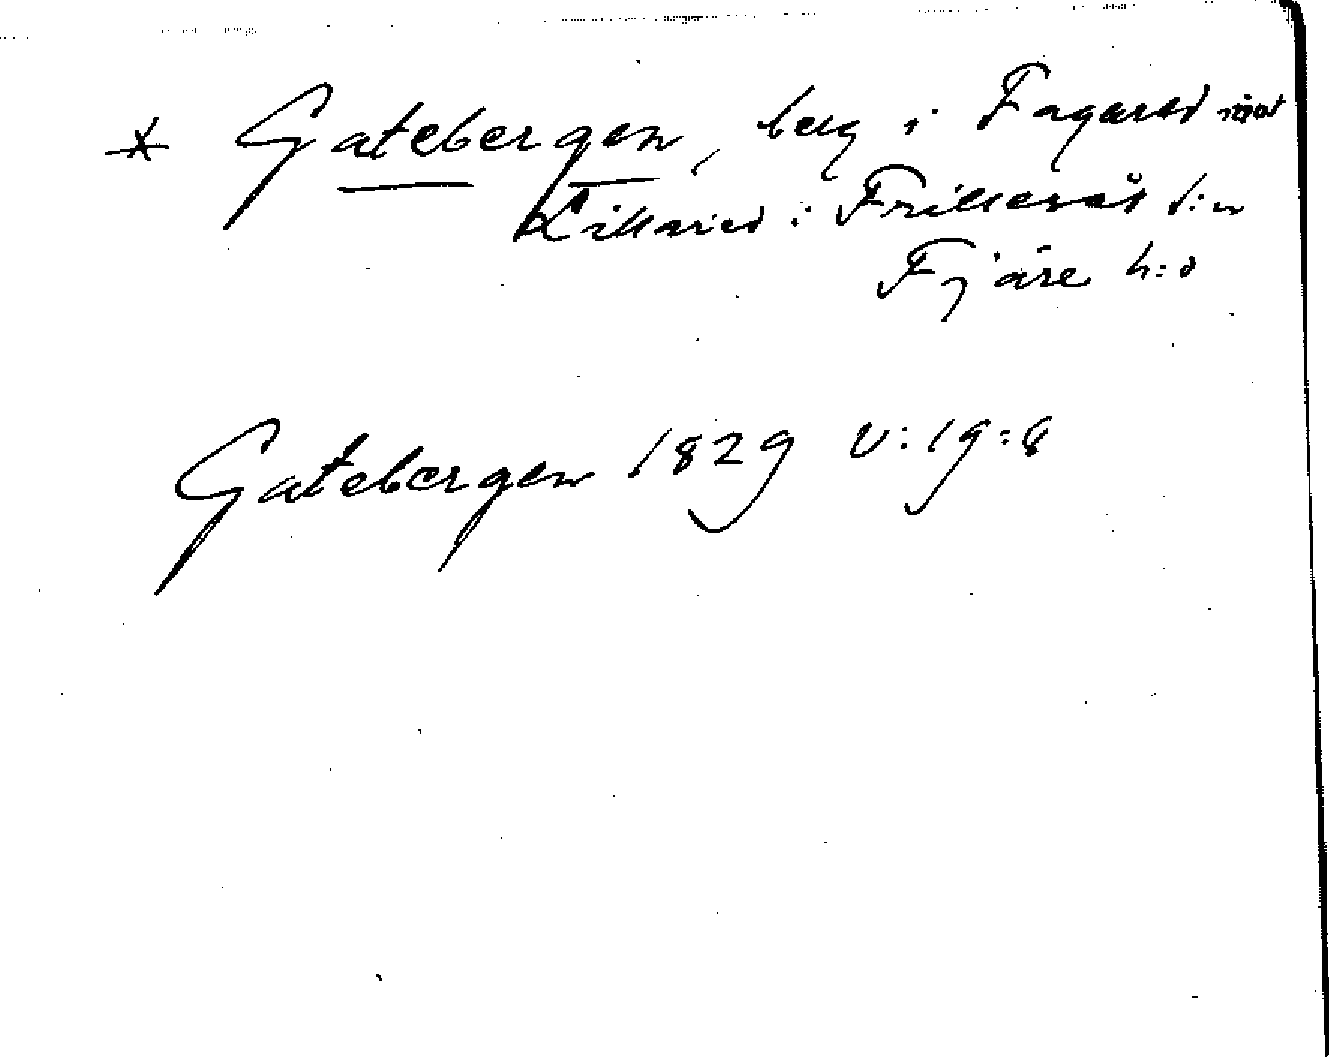 * Gatebergen, berg i Fagared mot
Lillaried i Frillesås s:n
Fjäre h:d
Gatebergen 1829 V:19:8